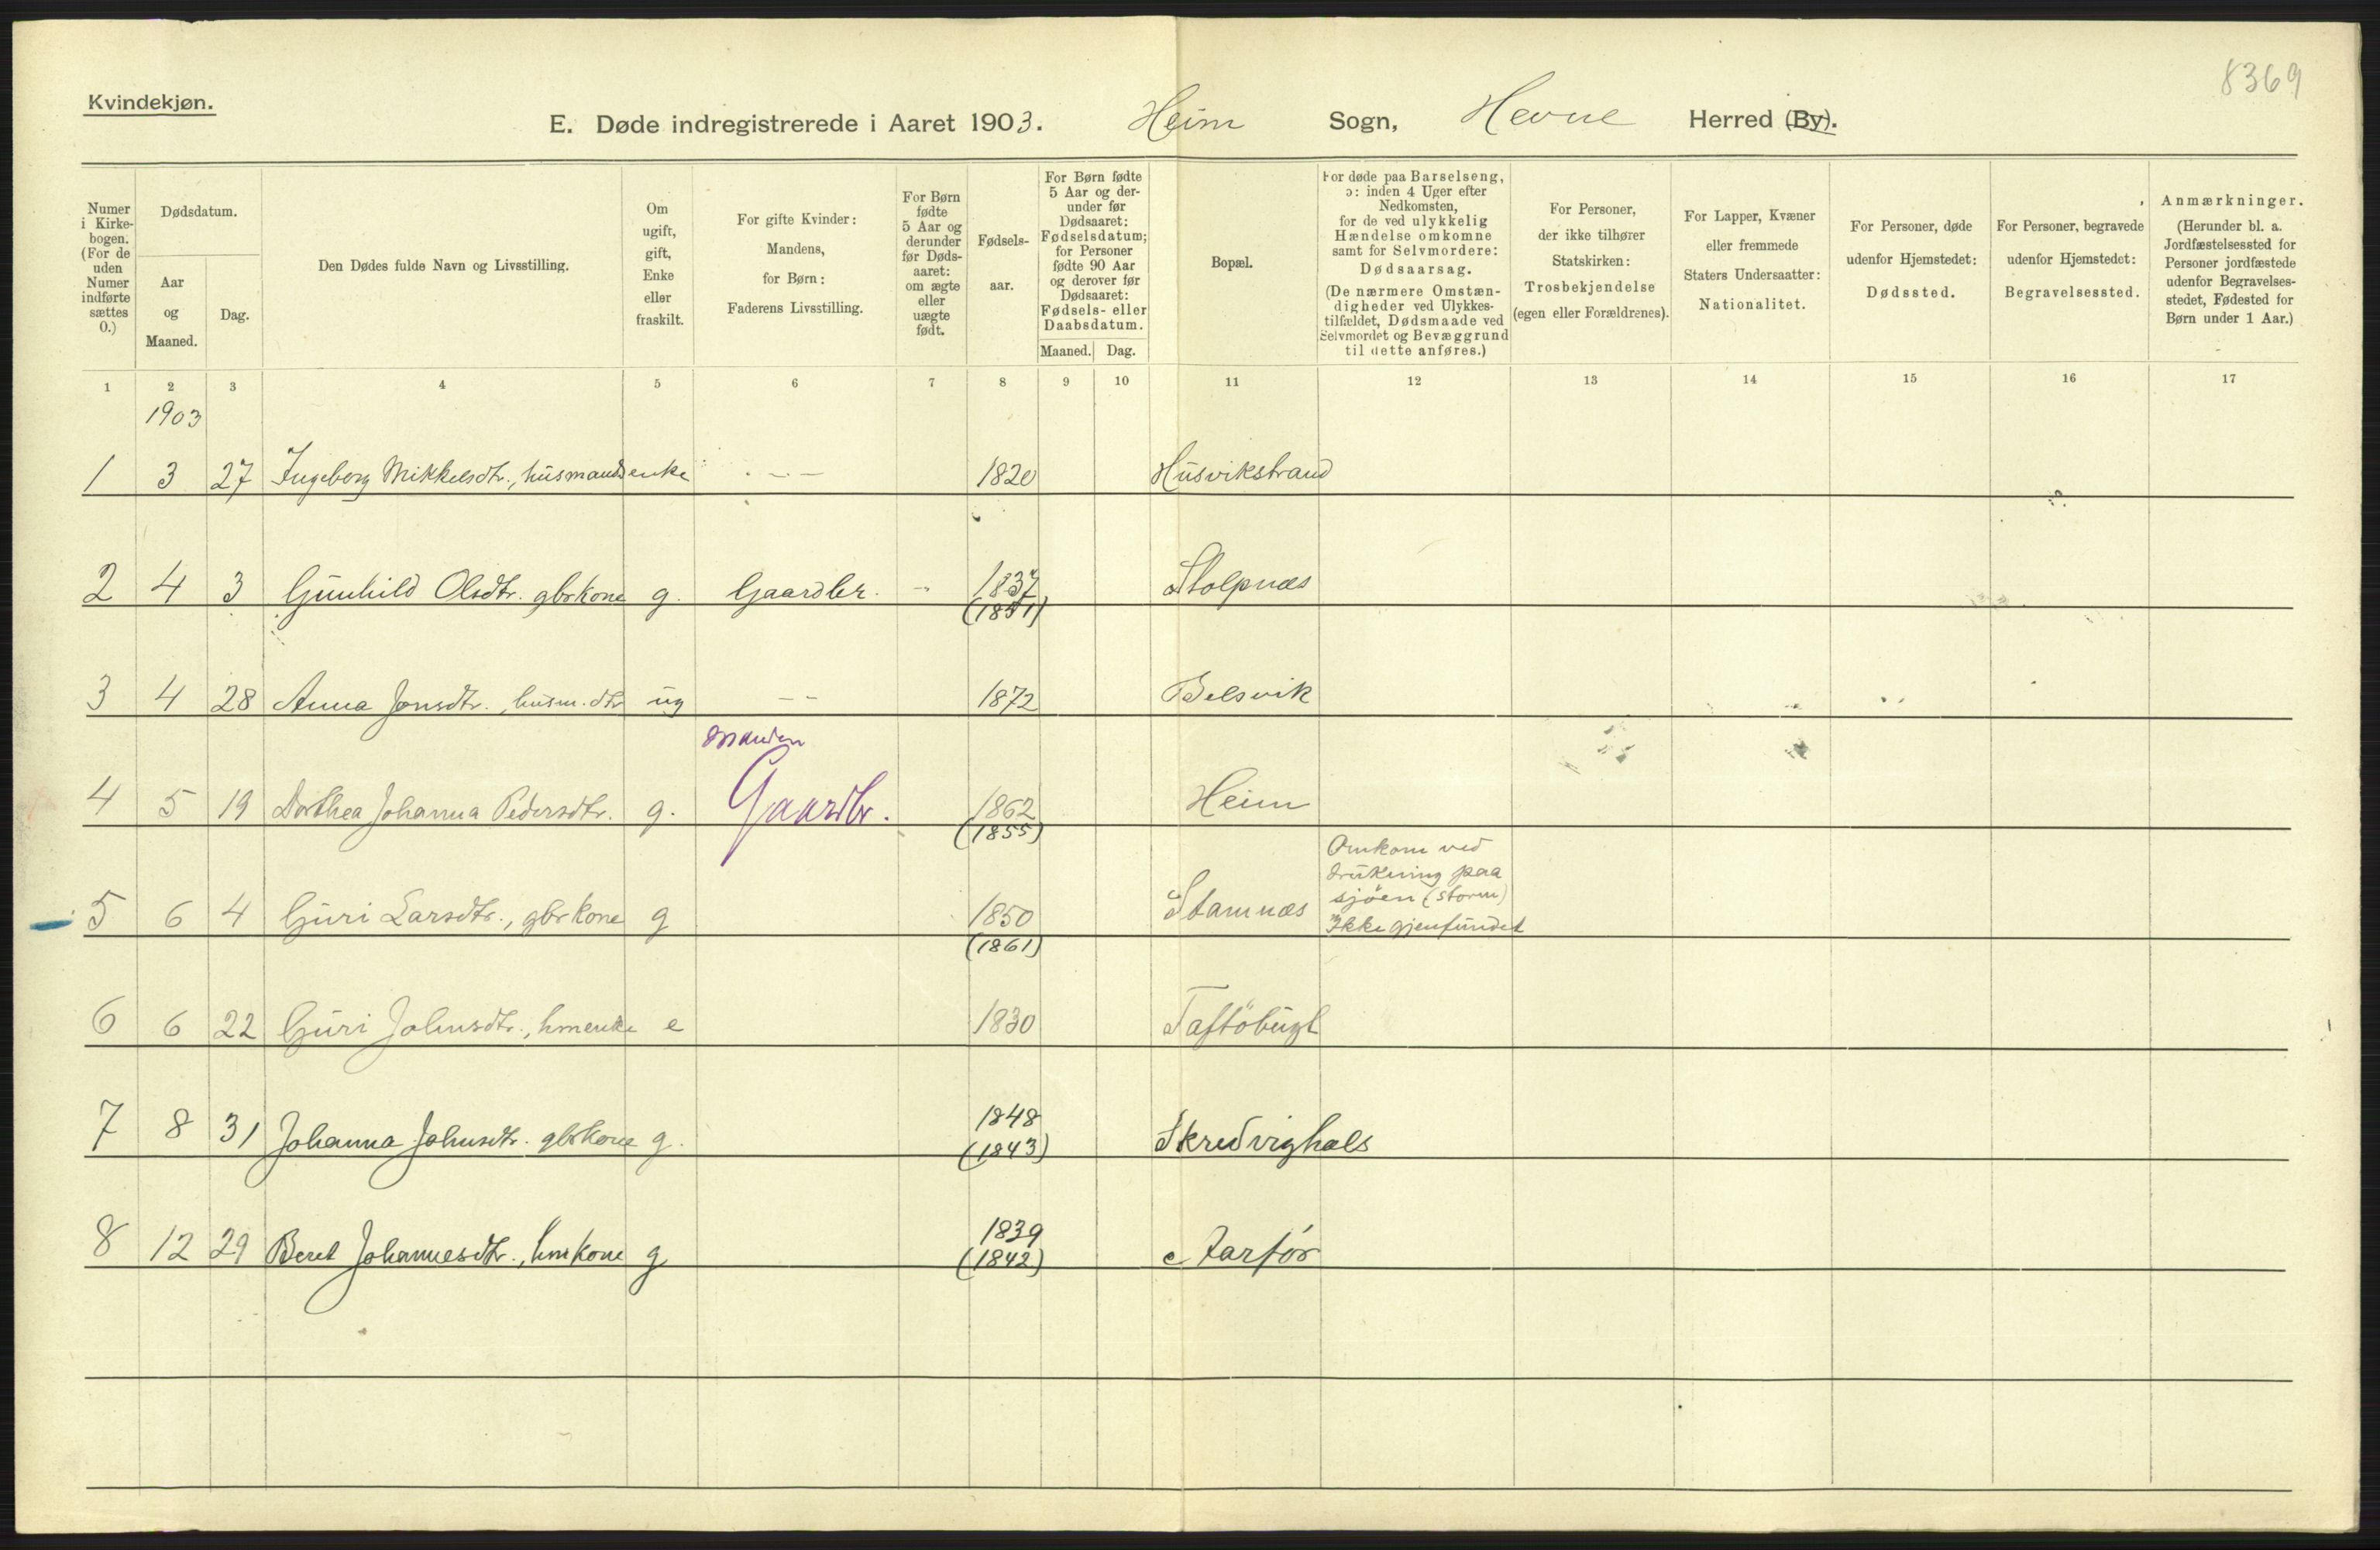 8369
Kvindekjøn.
E. Døde indregistrerede i Aaret 1903. Heim Sogn, Hevne Herred (By).
Numer i Kirkebogen. (For de uden Numer indførte sættes 0.)
Dødsdatum.
Aar og Maaned.
Dag.
Den Dødes fulde Navn og Livsstilling.
Om ugift, gift, Enke eller fraskilt.
For gifte Kvinder: Mandens, for Børn: Faderens Livsstilling.
For Børn fødte 5 Aar og derunder før Dødsaaret: om ægte eller uægte født.
Fødselsaar.
For Børn fødte 5 Aar og derunder før Dødsaaret: Fødselsdatum; for Personer fødte 90 Aar og derover før Dødsaaret: Fødsels- eller Daabsdatum.
Maaned. Dag.
Bopæl.
For døde paa Barselseng, ɔ: inden 4 Uger efter Nedkomsten, for de ved ulykkelig Hændelse omkomne samt for Selvmordere: Dødsaarsag. (De nærmere Omstændigheder ved Ulykkestilfældet, Dødsmaade ved Selvmordet og Bevæggrund til dette anføres.)
For Personer, der ikke tilhører Statskirken: Trosbekjendelse (egen eller Forældrenes).
For Lapper, Kvæner eller fremmede Staters Undersaatter: Nationalitet.
For Personer, døde udenfor Hjemstedet: Dødssted.
For Personer, begravede udenfor Hjemstedet: Begravelsessted.
Anmærkninger. (Herunder bl. a. Jordfæstelsessted for Personer jordfæstede udenfor Begravelsesstedet, Fødested for Børn under 1 Aar.)
1 2 3 4 5 6 7 8 9 10 11 12 13 14 15 16 17
1903
1 3 27 Ingeborg Mikkelsdtr., husmandsenke - - - 1820 Husvikstrand
2 4 3 Gunhild Olsdtr. gbrkone g. Gaardbr. - 1837 Stolpnæs
(1851)
3 4 28 Anna Jonsdtr., husm. dtr ug - - 1872 Belsvik
Manden
4 5 19 Dorthea Johanna Pedersdtr. g. Gaardbr. 1862 Heim
(1855)
Omkom ved
drukning paa
sjöen (storm)
Ikke gjenfundet
5 6 4 Guri Larsdtr., gbrkone g 1850 Stamnæs
(1861)
6 6 22 Guri Johnsdtr., hmenke e 1830 Taftöbugt
7 8 31 Johanna Johnsdtr. gbrkone g. 1848 Skredvighals
(1843)
8 12 29 Beret Johannesdtr., hmkone g 1839
(1842)